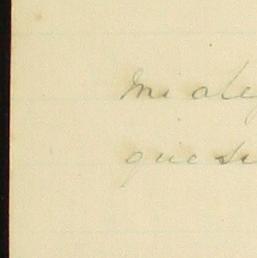 me aleg
que si